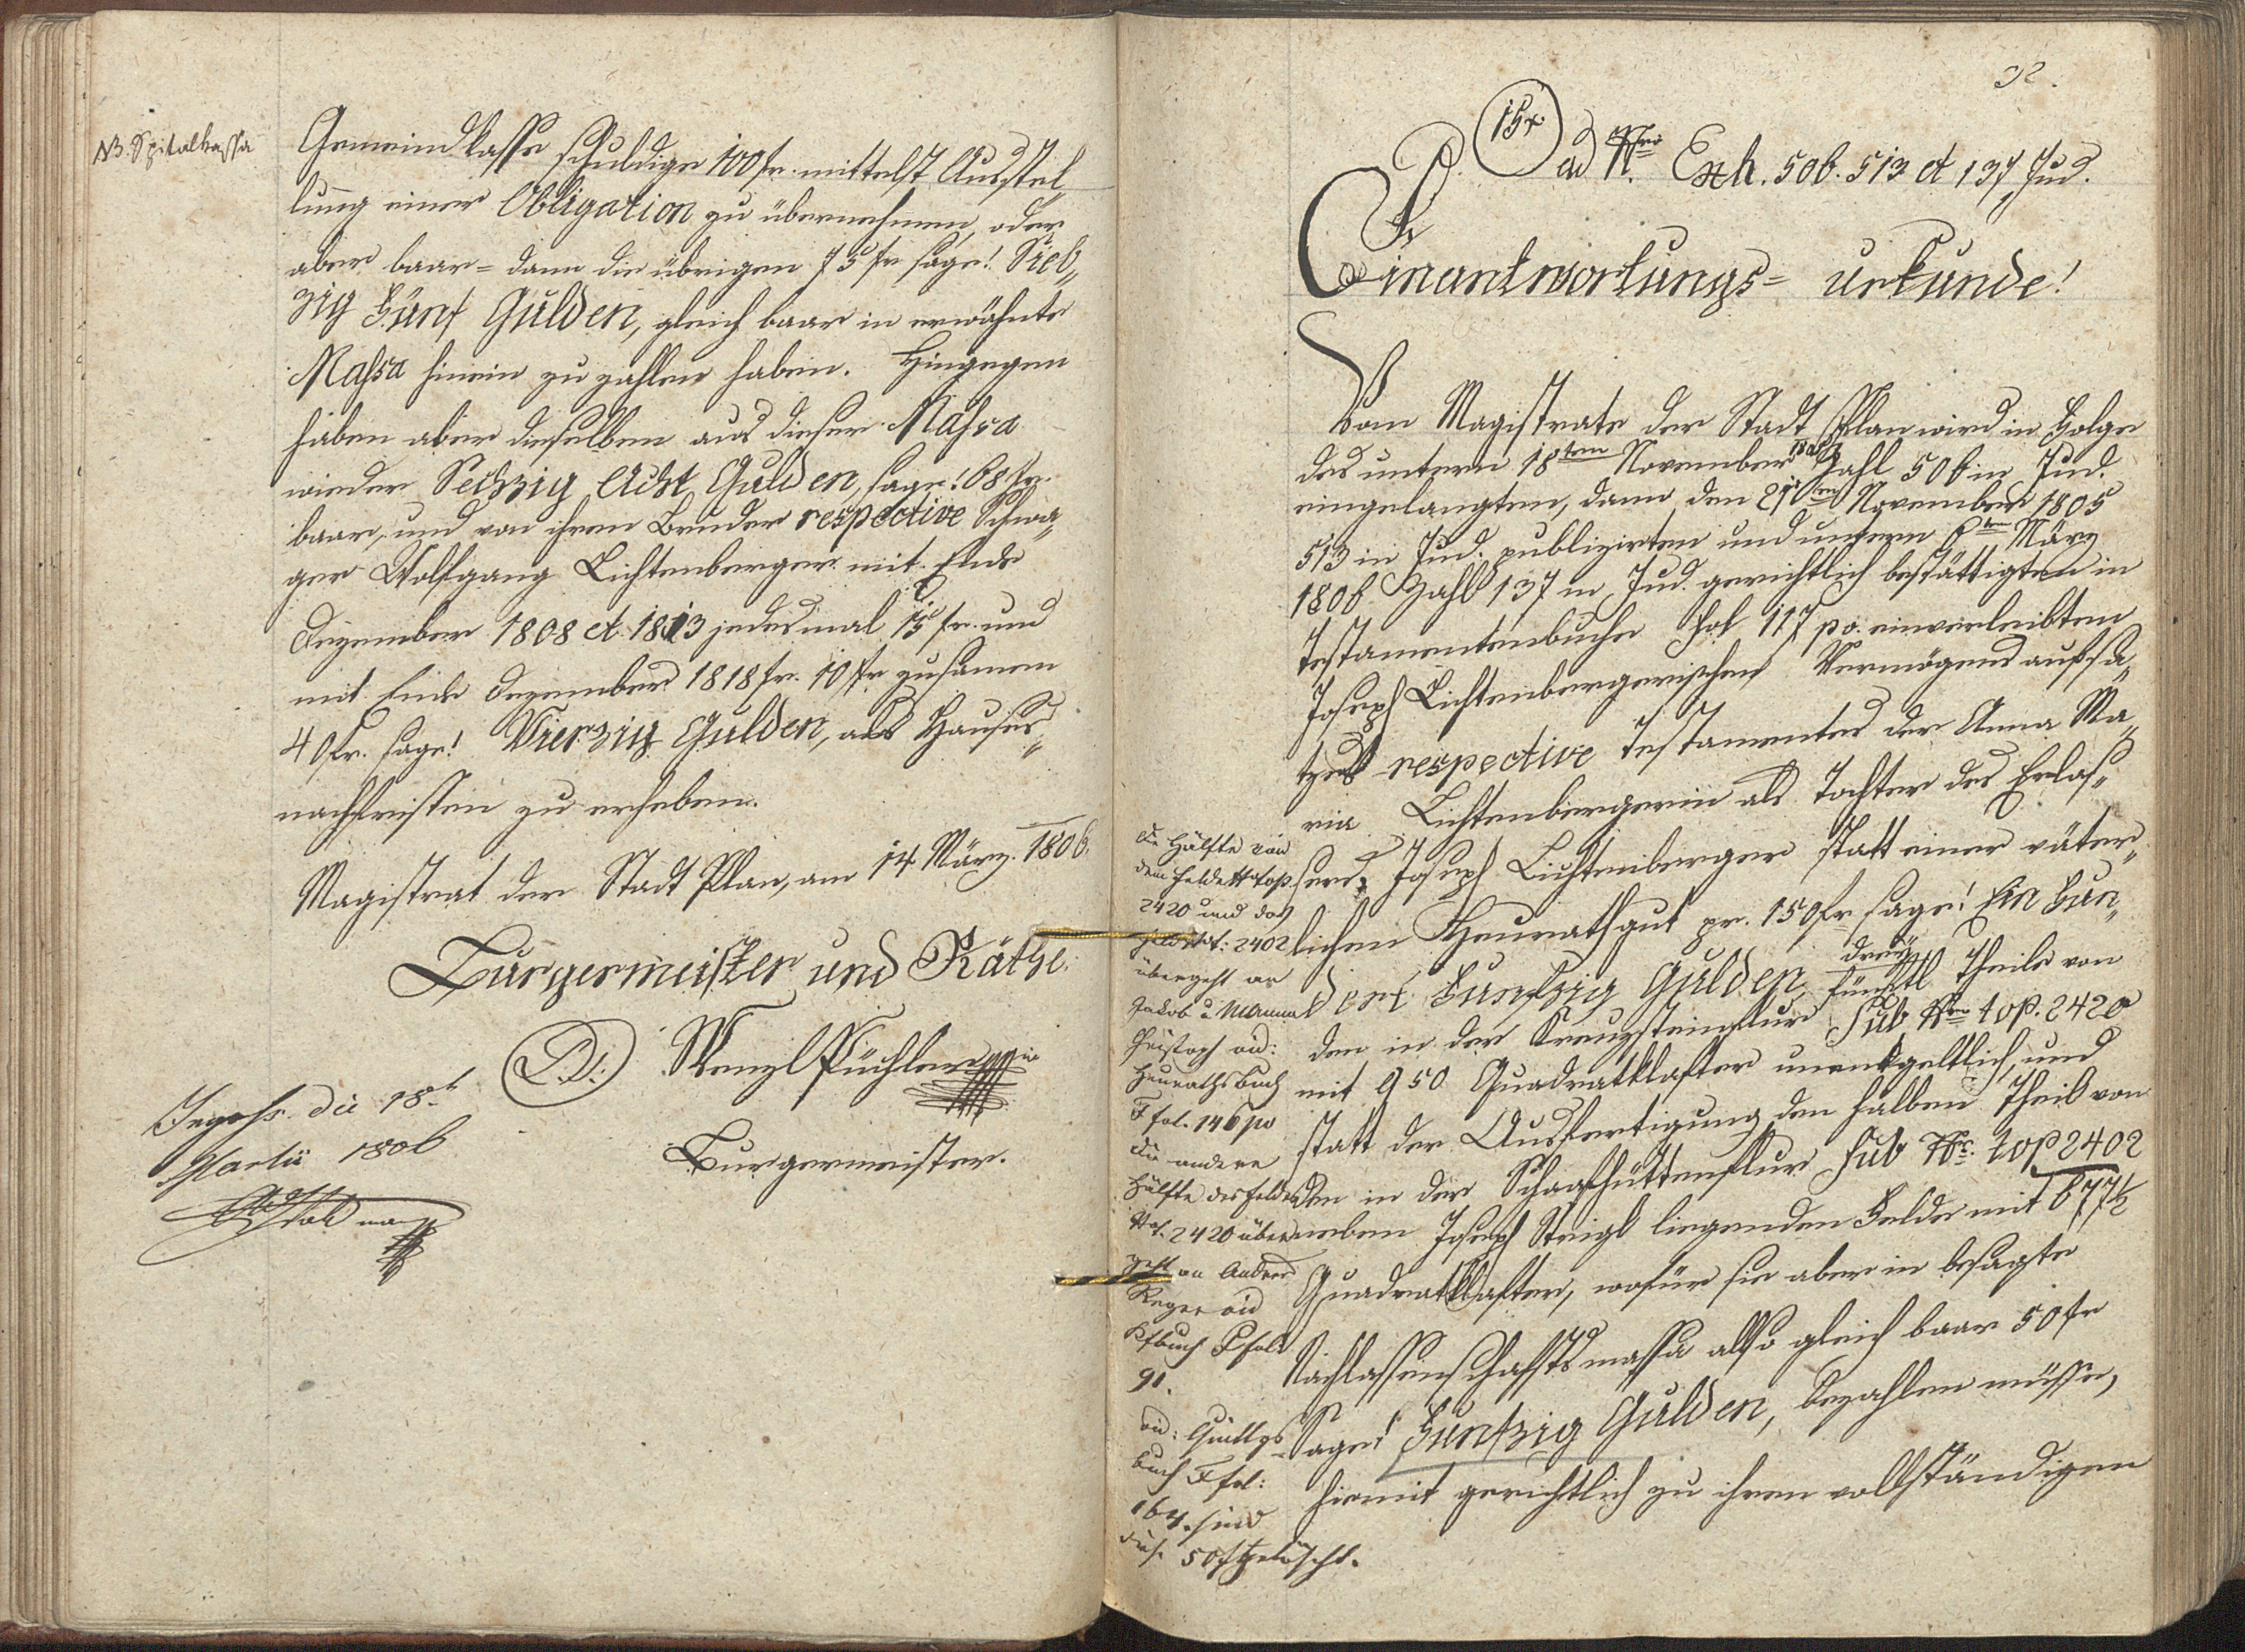 NB. Spitalkassa
Gemeindkasse schuldige 100 fr. mittelst Ausstel„
lung einer Obligation zu übernehmen, oder
aber baar= dann die übrigen 75 fr sage! Sieb„
zig Fünf Gulden, gleich baar in erwähnte
Massa hinein zu zahlen haben. Hingegen
haben aber dieselben aus dieser Massa
wieder Sechzig Acht Gulden, sage! 68 fr.
baar, und von ihrem Bruder respective Schwa„
ger Wolfgang Lichtenberger mit Ende
Dezember 1808 et 1813 jedesmal 15 fr. und
mit Ende Dezember 1818 fr. 10 fr zusamen
40 fr. sage! Vierzig Gulden, als Hauses„
nachfristen zu erheben.
Magistrat der Stadt Plan, am 14 März. 1806.
Bürgermeister und Räthe.
Wenzl Püchler
Burgermeister.
Ingohs. die 18t
Martii 1806
32.
15x
ad Nro Exh. 506. 513 et 137 Jud.
Einantwortungs= urkunde!
Vom Magistrate der Stadt Plan wird in Folge
des untern 18ten November Zahl 506 in Jud.
eingelangten, dann den 21ten November 1805
513 in Jud. publizirten und untern 6ten März
1806 Zahl 137 in Jud. gerichtlich bestättigten in
Testamentenbuche Fol 117 po. einverleibten
Joseph Lichtenbergerischen Vermögensaufsa„
tzes respective Testamentes der Anna Ma„
ria Lichtenbergerin als Tochter des Erlas„
sers Joseph Lichtenberger statt einer väter„
lichen Heurathgut pr. 150 fr sage! Ein Hun„
dert Funfzig Gulden, drey fünftl Theile von
den in der Kreuzsteinflur sub Nro top. 2420
mit 950 Quadratklafter unentgeltlich, und
statt der Ausfertigung den halben Theil von
den in der Schafhüttenflur sub No. top 2402
neben Joseph Steigl liegenden Felde mit 677½
Quadratklafter, wofür sie aber in besagte
Nachlassenschaftsmassa also gleich baar 50 fr
Sage! Funfzig Gulden, bezahlen müsse,
hiemit gerichtlich zu ihren vollständigen
Die Hälfte von
dem Felde No top.
2420 und das
Feld No t: 2402
übergeht an
Jakob u. Mariana
Christoph vid:
Heurathsbuch
F fol. 146 po
die andere
Hälfte des Feldes
No t. 2420 über
geht an Andres
Reger vid
Kfbuch P fol
91.
vid: Quittgs
buch F fol:
164. sind
diese 50 fr gelöscht.